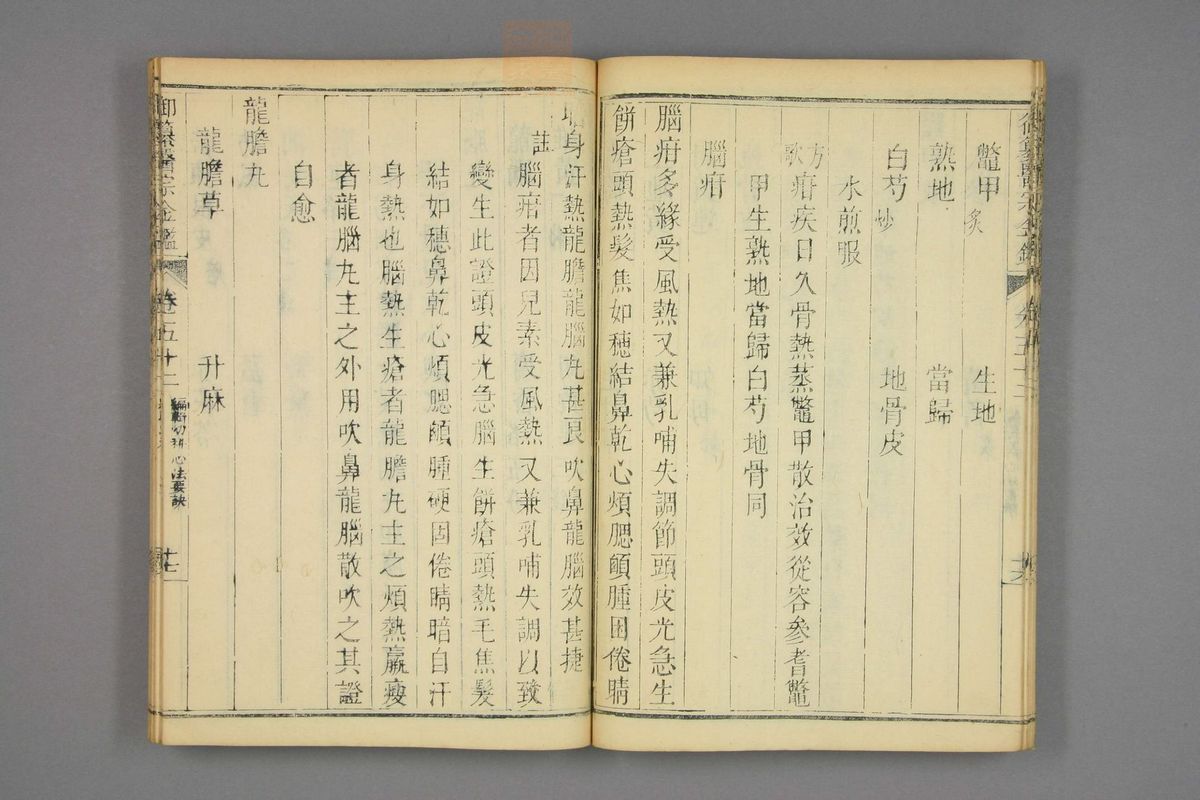 鼈甲 炙 生地
熟地 當歸
白芍 炒 地骨皮
水煎服
方歌 疳疾日久骨熱蒸鼈甲散治效從容參耆鼈
甲生熟地當歸白芍地骨同
腦疳
腦疳多緣受風熱又兼乳哺失調節頭皮光急生
餅瘡頭熱髮焦如穗結鼻乾心煩腮䪼腫困倦睛
身汗熱龍膽龍腦丸甚良吹鼻龍腦效甚捷
註 腦疳者因兒素受風熱又兼乳哺失調以致
變生此證頭皮光急腦生餅瘡頭熱毛焦髮
結如穗鼻乾心煩腮䪼腫硬困倦睛暗自汗
身熱也腦熱生瘡者龍膽丸主之煩熱羸瘦
者龍腦丸主之外用吹鼻龍腦散吹之其證
自愈
龍膽丸
龍膽草 升麻
御纂醫宗金鑑 卷五十二 編輯幼科心法要訣 十七